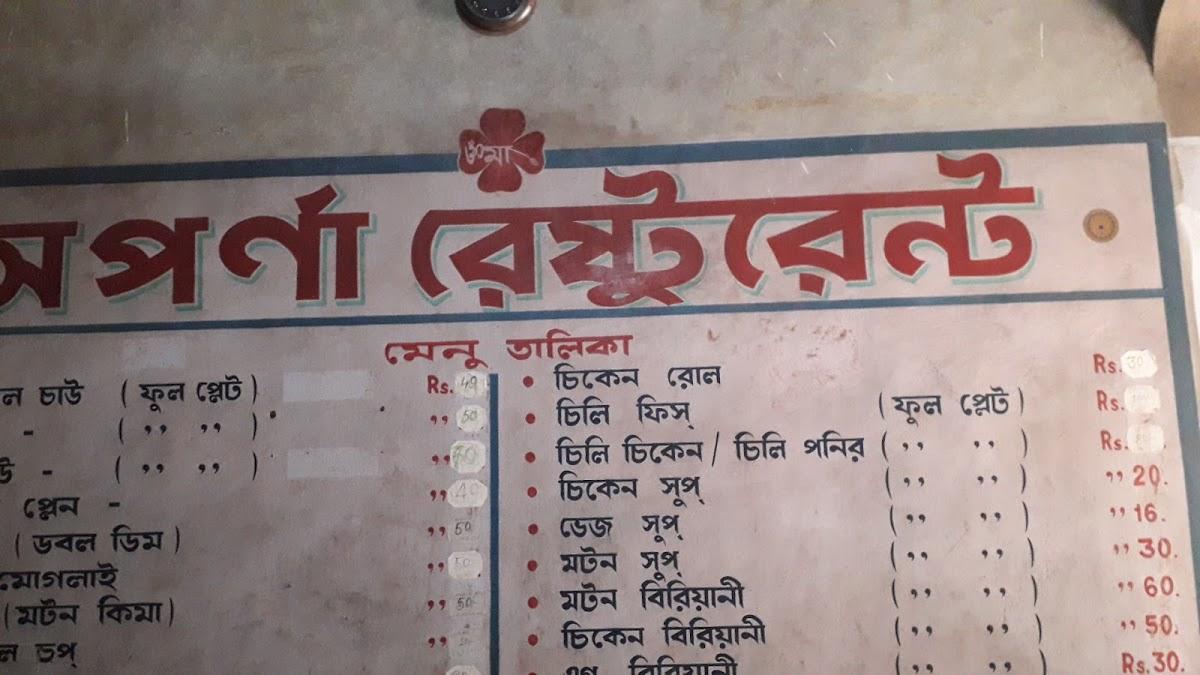 ওঁ মা
সপর্ণা রেষ্টুরেন্ট
মেনু তালিকা
ল চাউ ( ফুল প্লেট ) Rs. 40
- ( ,, ,, ) ,, 50
উ - ( ,, ,, ) ,,
প্লেন - ,, 40
( ডবল ডিম ) ,, 50
মোগলাই ,, 50
(মটন কিমা) ,, 50
ল ডপ্ ,,
• চিকেন রোল Rs. 30
• চিলি ফিস্ ( ফুল প্লেট ) Rs.
• চিলি চিকেন / চিলি পনির ( ,, ,, ) Rs.
• চিকেন সুপ্ ( ,, ,, ) ,, 20.
• ভেজ সুপ্ ( ,, ,, ) ,, 16.
• মটন সুপ্ ( ,, ,, ) ,, 30.
• মটন বিরিয়ানী ( ,, ,, ) ,, 60.
• চিকেন বিরিয়ানী ( ,, ,, ) ,, 50.
এগ বিরিয়ানী ( ,, ,, ) Rs. 30.